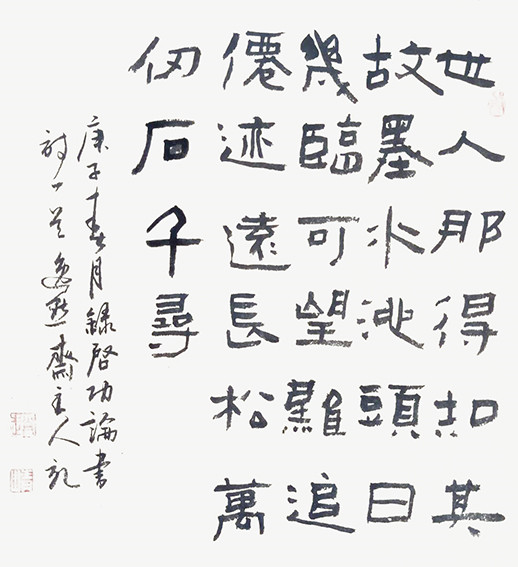 世人那得知其
故墨水池頭日
幾臨可望難追
僊迹遠長松萬
仞石千尋
庚子春月録啓功論書
詩一首 齋主人記